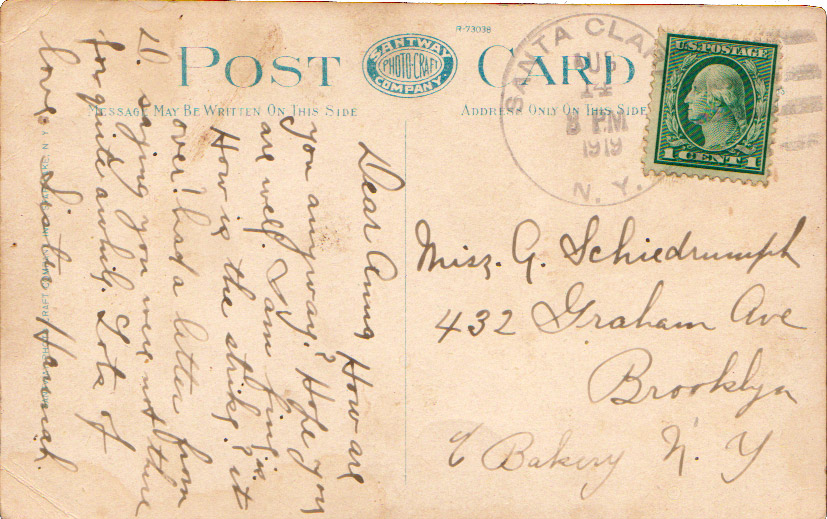 R-73038
POST CARD
SANTWAY
PHOTO-CRAFT
COMPANY.
MESSAGE MAY BE WRITTEN ON THIS SIDE
ADDRESS ONLY ON THIS SIDE
SANTA CLARA
AUG
14
3 PM
1919
N. Y.
U.S. POSTAGE
1 CENT 1
Dear Anna How are
you anyway? Hope you
are well. I am fine.
How is the strike? is it
over? had a letter from
D. saying you were not there
for quite awhile. Lots of
love, Sister Hannah.
Miss. G. Schiedrumph
432 Graham Ave
Brooklyn
c/o Bakery N. Y